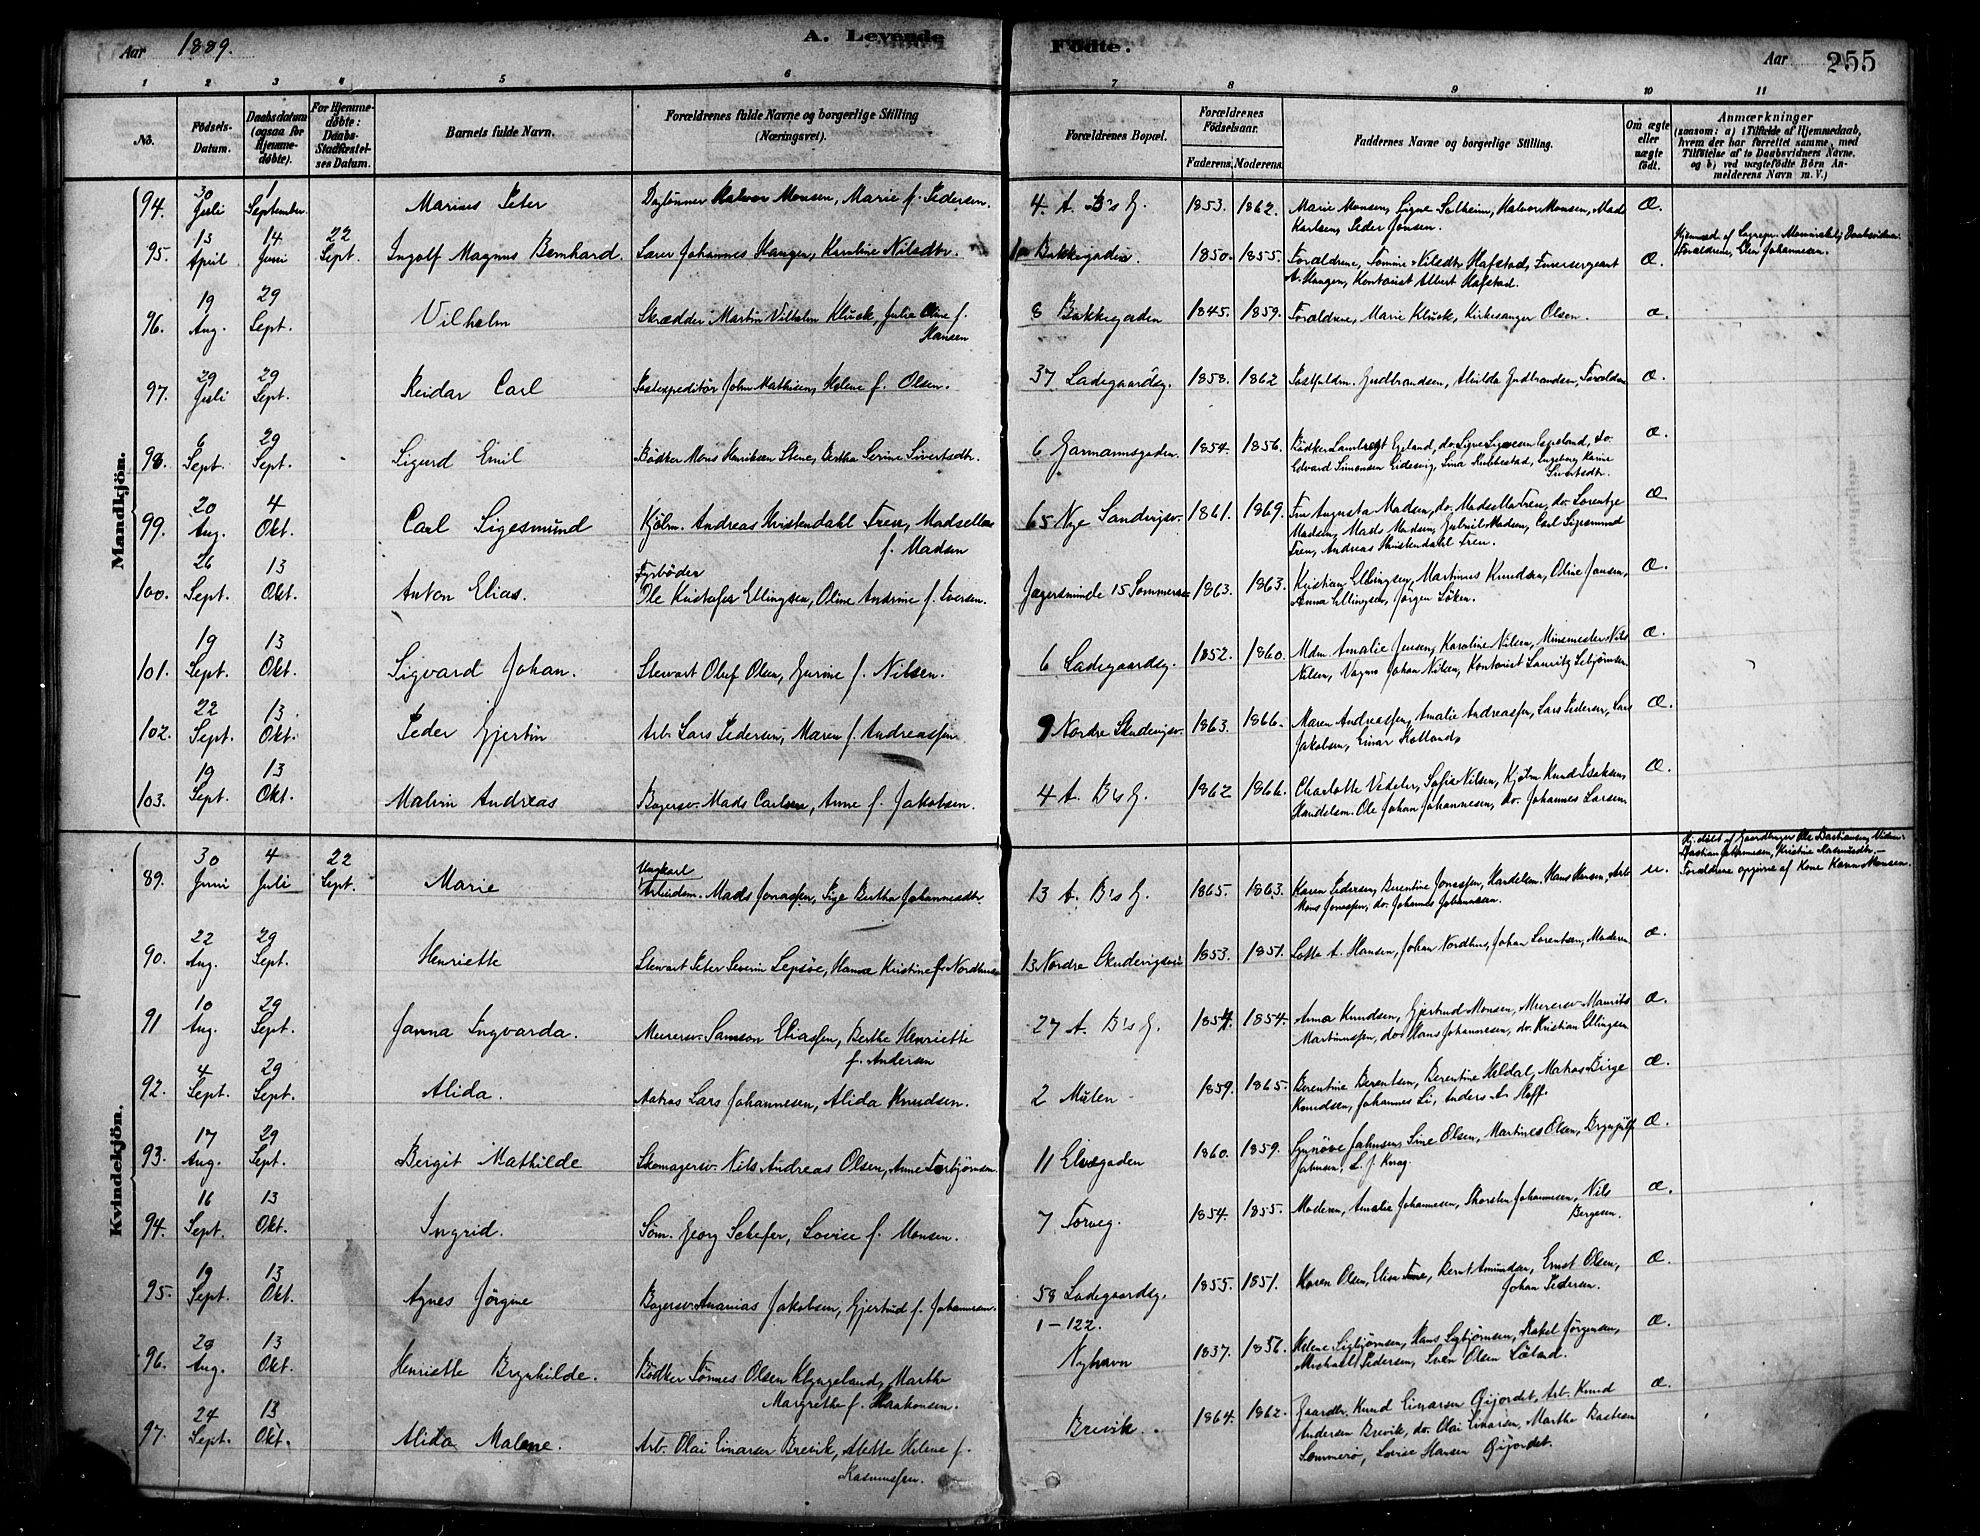 Aar 1889. A. Levende Fødte. Aar 255
1 2 3 4 5 6 7 8 9 10 11
No. Födsels-Datum. Daabsdatum (ogsaa for Hjemmedøbte). For Hjemmedøbte: Daabs-Stadfæstelses Datum. Barnets fulde Navn. Forældrenes fulde Navne og borgerlige Stilling (Næringsvei). Forældrenes Bopæl. Forældrenes Födselsaar. Faderens. Moderens. Faddernes Navne og borgerlige Stilling. Om ægte eller uægte født. Anmærkninger (saasom: a) i Tilfælde af Hjemmedaab, hvem der har forrettet samme, med Tilføielse af to Daabsvidners Navne, og b) ved uægtefødte Børn Anmelderens Navn m. V.)
Mandkjön.
94. 30 Juli 1 September. Marius Peter Daglønner Halvor Monsen, Marie f. Pedersen. 4. A. B's G. 1853. 1862. Marie Monsen, Signe Solheim, Halvor Monsen, Mads
Karlsen, Peder Jonsen. Æ.
95. 13 April 14 Juni 22 Sept. Ingolf Magnus Bernhard. Lærer Johannes Haugen, Karoline Nilsdtr. 10 Bakkegaden. 1850. 1855. Forældrene, Tomine Nilsdtr Hafstad, Furersergeant
A. Haugen, Kontorist Albert Hafstad. Æ.
Forældrene, Johannesen.
96. 19 Aug. 29 Sept. Vilhelm Skrædder Martin Vilhelm Kluck, Julie Oline f.
Hansen 8 Bakkegaden 1845. 1859. Forældrene, Marie Kluck, Kirkesanger Olsen. Æ.
97. 29 Juli 29 Sept. Reidar Carl Postexpeditör John Mathisen, Helene f. Olsen. 37 Ladegaardsg. 1858. 1862 Postfuldm. Gudbrandsen, Alvilda Gudbrandsen, Forældrene Æ.
98. 6 Sept. 29 Sept. Sigurd Emil Bödker Mons Henriksen Stene, Bertha Serine Sivertsdtr. 6 Garmannsgaden. 1854. 1856. Bödker Lambregt Egeland, do.
Edvard Simonsen Eidesvig, Lina Kubbestad, Ingeborg Karine
Sivertsdtr. Æ.
99. 20 Aug. 4 Okt. Carl Sigesmund Kjölm. Andreas Kristendahl Tren, Madsella
f. Madsen 65 Nye Sandvigsv. 1861. 1869. Fru Augusta Madsen, do. Madsella Tren, do. Lorentze
Madsen, Mads Madsen, Gabriel Madsen, Carl Sigesmund
Tren, Andreas Kristendahl Tren. Æ
100. 26 Sept. 13 Okt. Anton Elias. Fyrböder
Ole Kristofer Ellingsen, Oline Andrine f. Iversen. Jægersminde 15 1863. 1863. Kristian Ellingsen, Martinus Knudsen, Oline Jansen,
Anna Ellingsen, Jörgen Löken. Æ.
101. 19 Sept. 13 Okt. Sigvard Johan. Stewart Oluf Olsen, Gurine f. Nilsen. 6 Ladegaardsg. 1852. 1860. Mdm. Amalie Jensen, Karoline Nilsen, Minemester Nils
Nilsen, Vognm Johan Nilsen, Kontorist Lauritz Æ.
102. 22 Sept. 13 Okt. Peder Gjertin Arb. Lars Pedersen, Maren f. Andreassen 9 Nordre Skudevigsv. 1863. 1866. Maren Andreassen, Amalie Andreassen, Lars Pedersen, Lars
Jakobsen, Einar Æ.
103. 19 Sept. 13 Okt. Malvin Andreas Bagersv. Mads Carlsen, Anne f. Jakobsen. 4 A. B's G. 1862 1866. Charlotte Vedeler, Sofie Nilsen, Kjölm Knud Isaksen,
Handelsm. Ole Johan Johannesen, do. Johannes Larsen. Æ.
Kvindekjön.
89. 30 Juni 4 Juli 22 Sept. Marie Ungkarl
Arbeidsm. Mads Jonassen, Pige Bertha Johannesdtr. 13 A. B's G. 1865. 1863. Karen Pedersen, Berentine Jonassen, Handelsm. Hans Hansen, Arb.
Mons Jonassen, do. Johannes Johannesen. u. Hj. döbt af Gaardbruger Ole Bastiansen, Vidner:
Bastian Johannesen, Kristine Rasmusdtr. –
Forældrene opgivne af Kone Karen Monsen.
90. 22 Aug. 29 Sept. Henriette Stewart Peter Severin Lepsöe, Hanna Kristine f. Nordhuus 13 Nordre Skudevigsvei 1853. 1851. Lotte A. Hansen, Johan Nordhus, Johan Lorentsen, Moderen Æ.
91 10 Aug. 29 Sept. Janna Ingvarda. Murersv. Samson Eliassen, Berthe Henriette
f. Andersen 27 A. B's G. 1854. 1854. Anna Knudsen, Gjertrud Monsen, Murersv. Maurits
Martinussen, do. Hans Johannesen, do. Kristian Ellingsen. Æ.
92. 4 Sept. 29 Sept. Alida. Matros Lars Johannesen, Alida Knudsen. 2 Mülen 1859. 1865. Berentine Berentsen, Berentine Heldal, Matros Birge
Knudsen, Johannes Li, Anders A. Hoff. Æ.
93. 17 Aug. 29 Sept. Bergit Mathilde Skomagersv. Nils Andreas Olsen, Anne Torbjörnsen 11 Elvegaden 1860. 1859. Synnöve Johnsen, Sine Olsen, Martines Olsen, Brynjulf
Johnsen, L. J. Krag. Æ.
94. 16 Sept. 13 Okt. Ingrid. Söm. Georg Schefer, Lovise f. Monsen. 7 Torveg. 1854. 1855. Moderen, Amalie Johannesen, Thorsten Johannesen, Nils
Bergesen. Æ.
95. 19 Sept. 13 Okt. Agnes Jörgine Bagersv. Ananias Jakobsen, Gjertrud f. Johannesen. 58 Ladegaardsg. 1855. 1851. Karen Olsen, Elisa Bernt Amundsen, Ernst Olsen,
Johan Pedersen. Æ.
96. 20 Aug. 13 Okt. Henriette Brynhilde. Bödker Tönnes Olsen Klungeland, Marthe
Margrethe f. Haakonsen. 1–122.
Nyhavn 1837. 1856. Helene Sigbjörnsen, Hans Sigbjörnsen, Rakel Jörgensen,
Michael Pedersen, Sven Olsen Æ.
97. 24 Sept. 13 Okt. Alida Malene. Arb. Olai Einarsen Brevik, Alette Helene f.
Rasmussen. Brevik. 1864. 1862. Gaardbr. Knud Einarsen Gjordet, Arb. Knud
Andersen Brevik, do. Olai Einarsen, Marthe Bastesen
Sommerö, Lovise Hansen Gjordet. Æ.